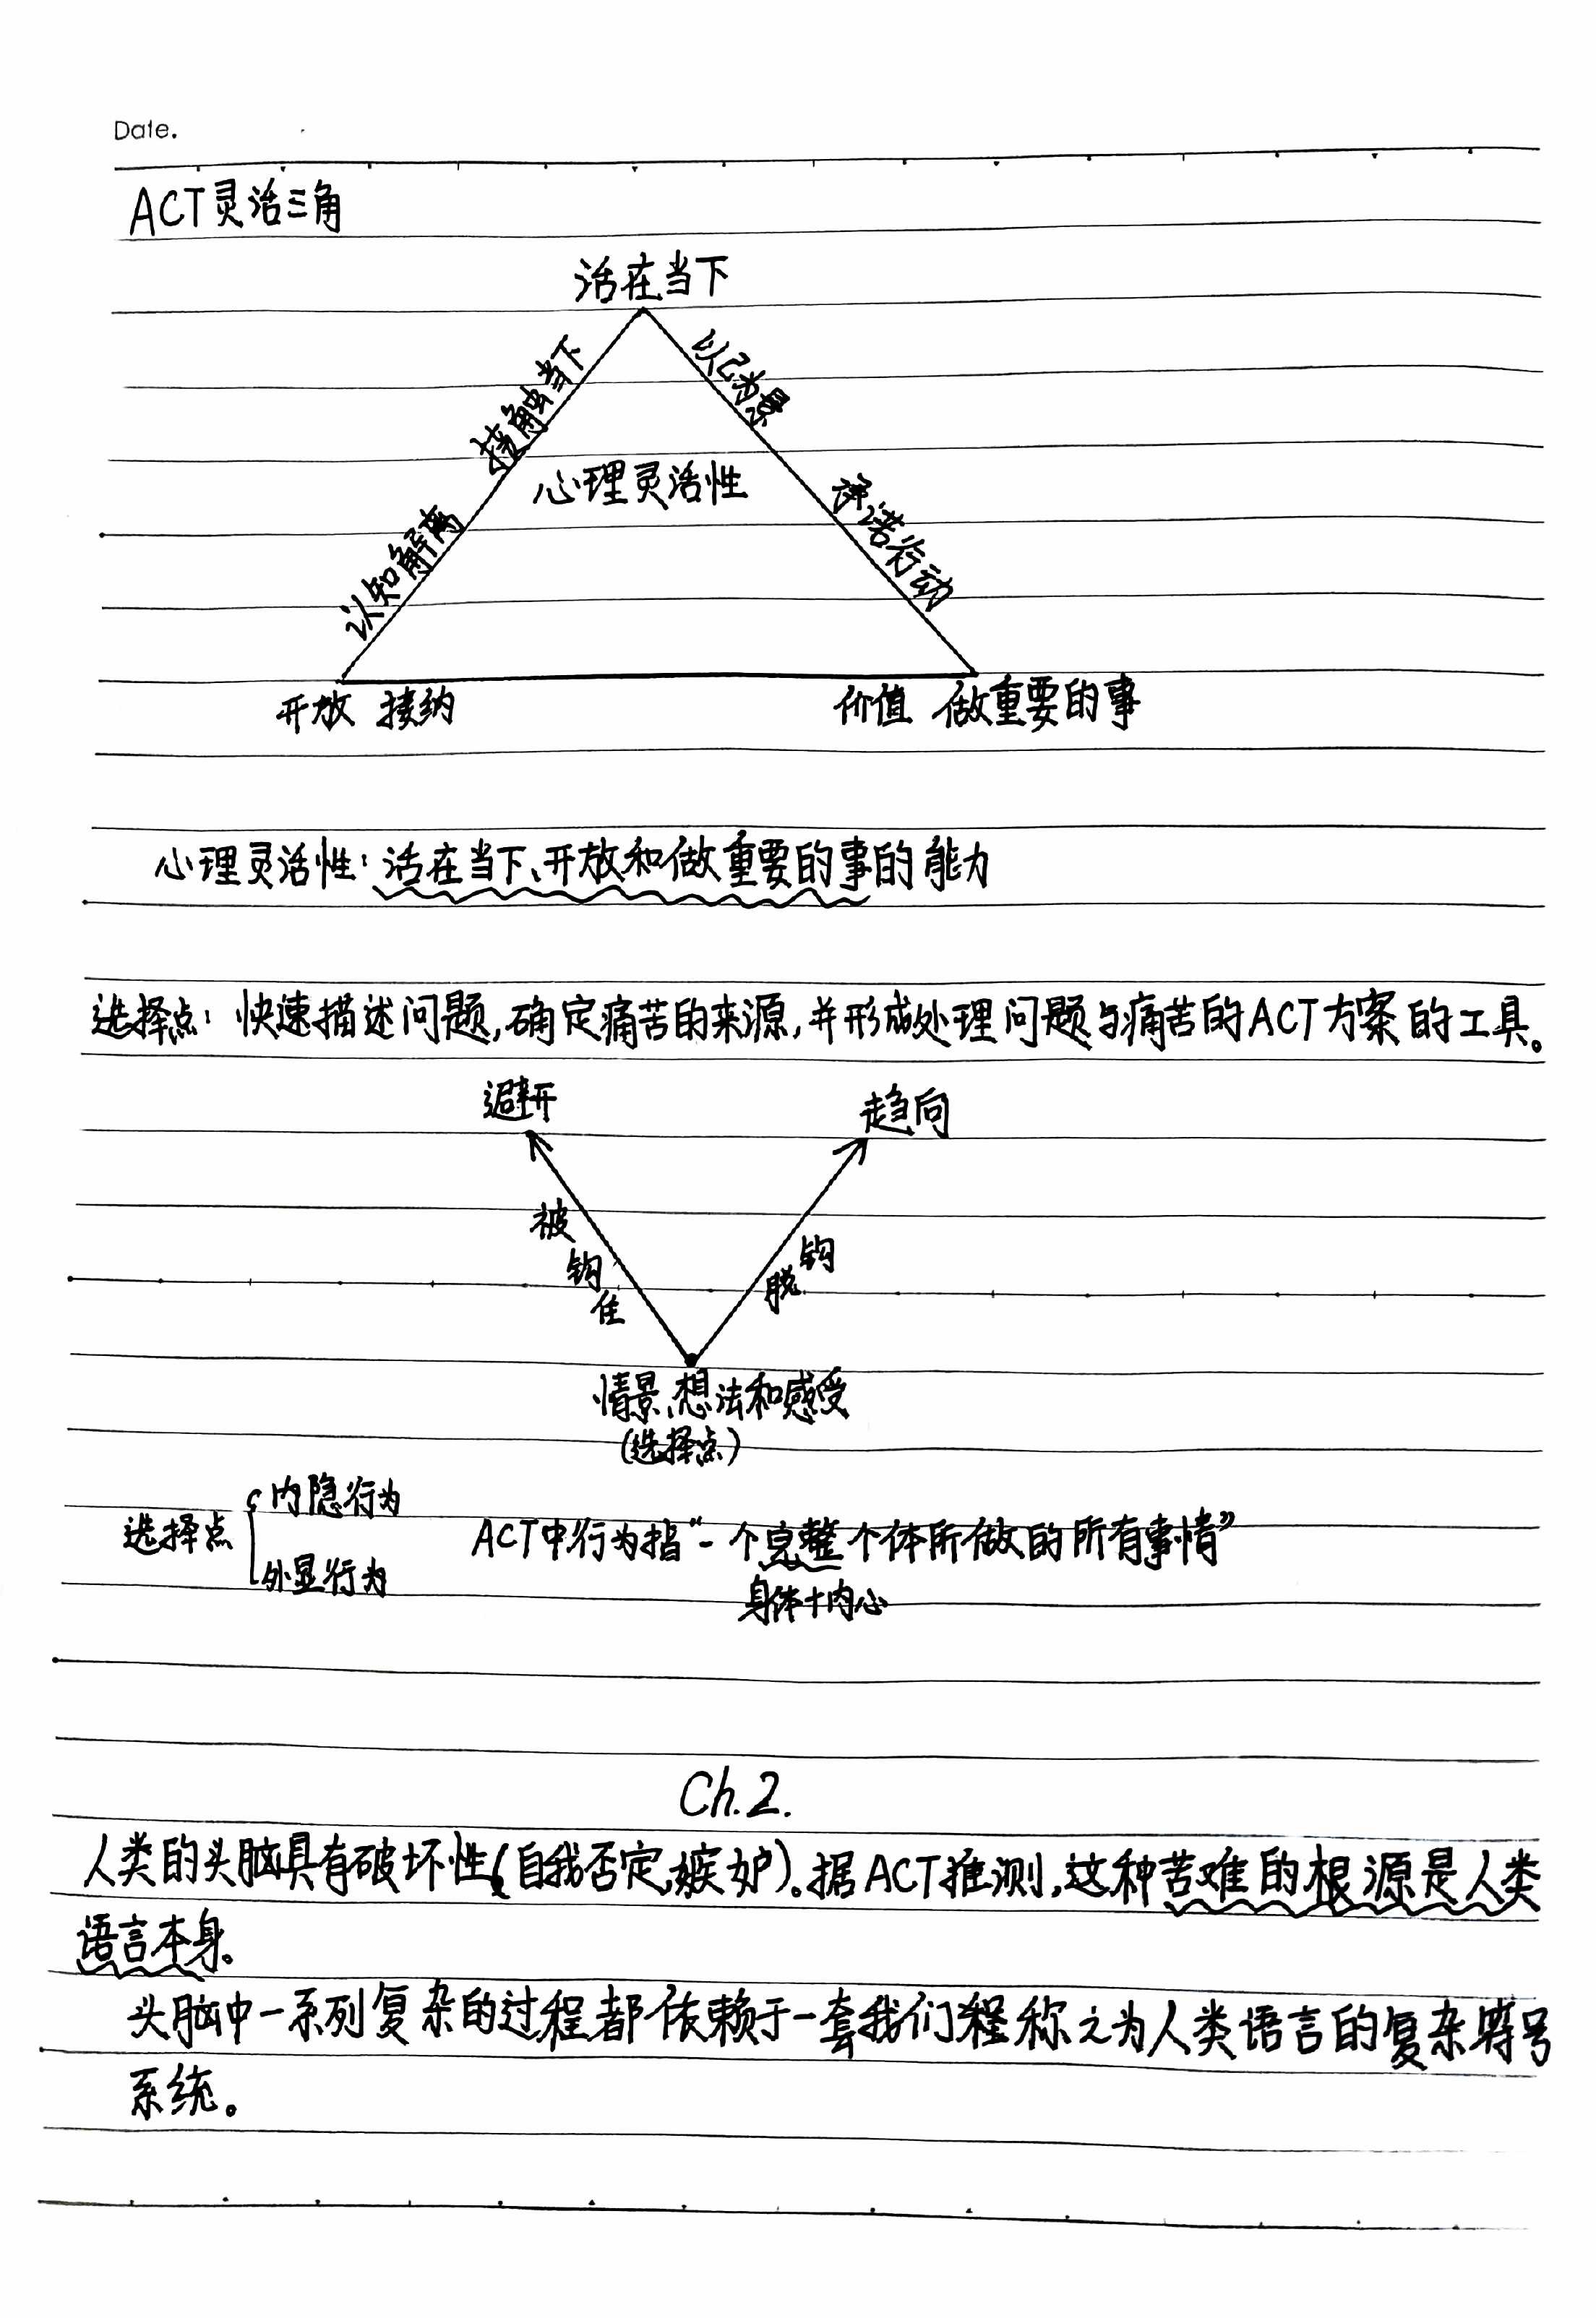 Date.
ACT灵活三角
活在当下
接触当下
以己为景
心理灵活性
认知解离
承诺行动
开放 接纳
价值 做重要的事
心理灵活性:活在当下、开放和做重要的事的能力
选择点:快速描述问题,确定痛苦的来源,并形成处理问题与痛苦的ACT方案的工具。
避开
趋向
被钩住
脱钩
情景、想法和感受
(选择点)
选择点
内隐行为
外显行为
ACT中行为指“一个完整个体所做的所有事情”
身体+内心
Ch.2.
人类的头脑具有破坏性(自我否定,嫉妒)。据ACT推测,这种苦难的根源是人类
语言本身。
头脑中一系列复杂的过程都依赖于一套我们称之为人类语言的复杂符号
系统。